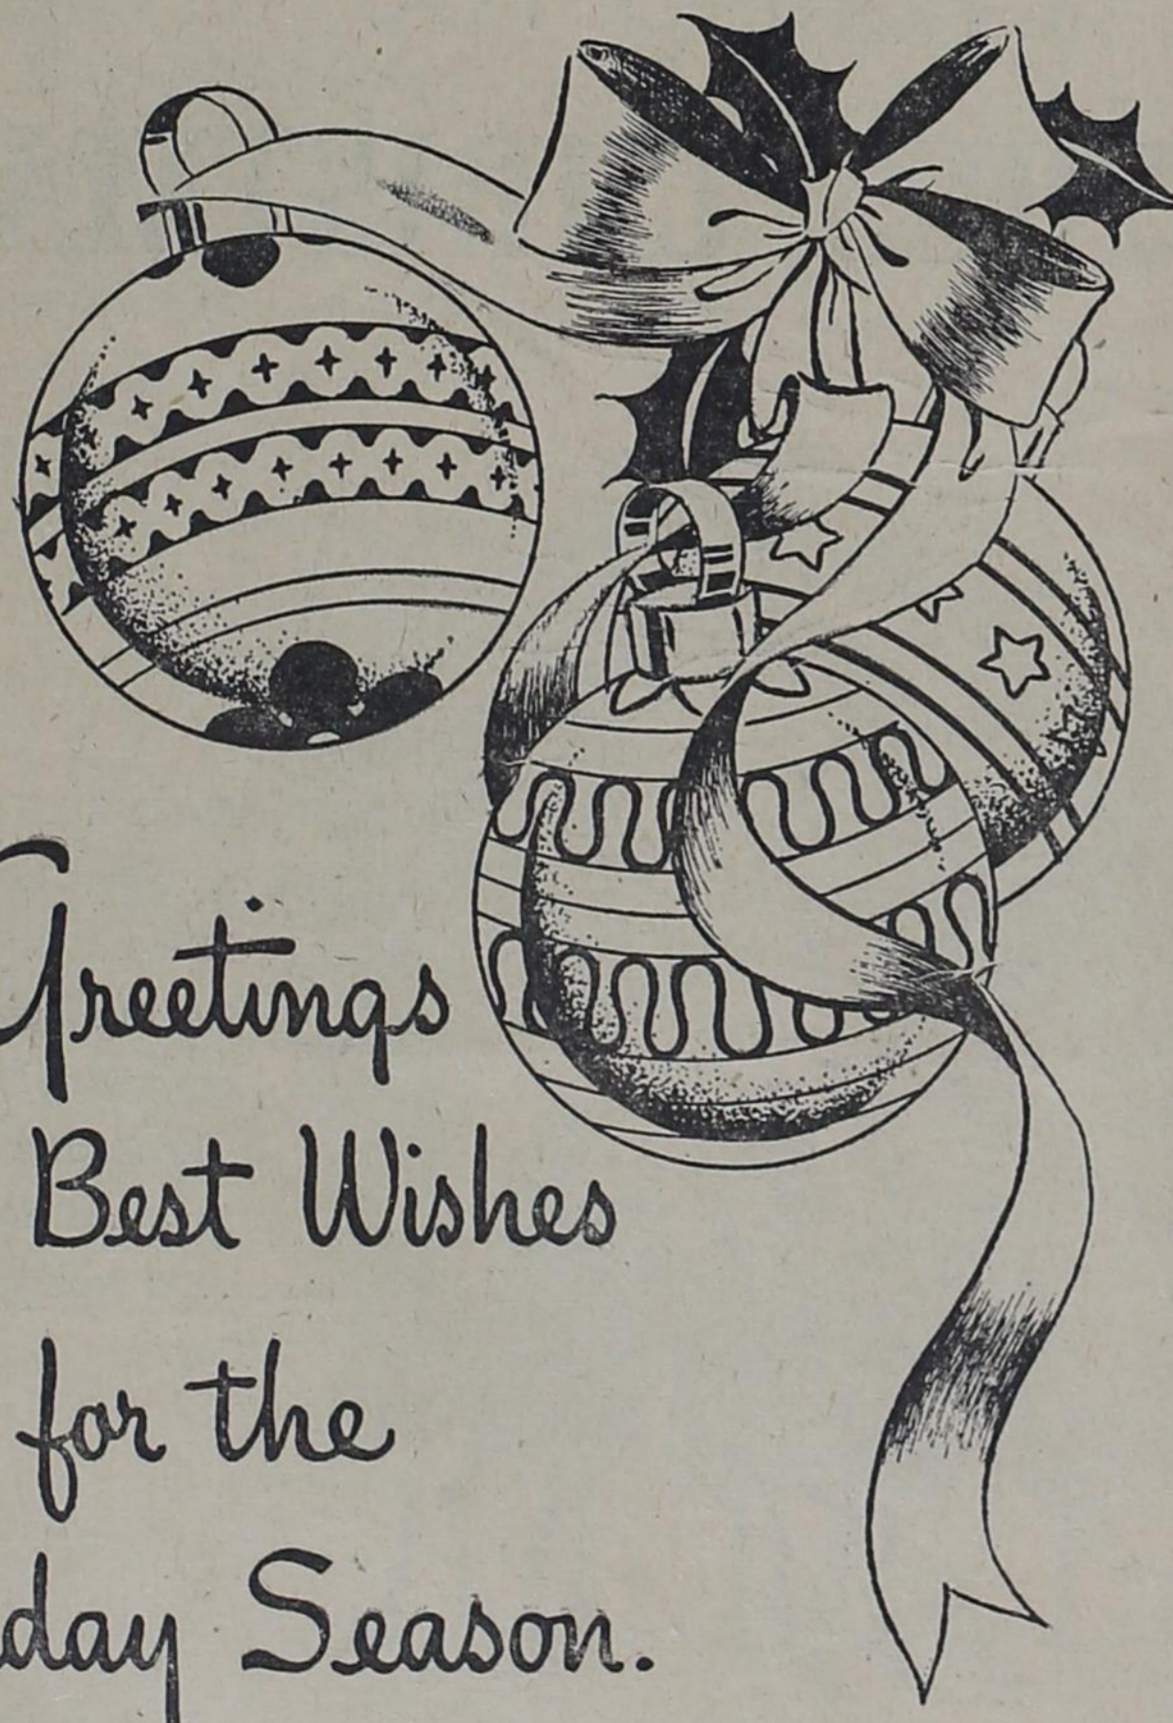 Greetings
Best Wishes
for the
day Season.